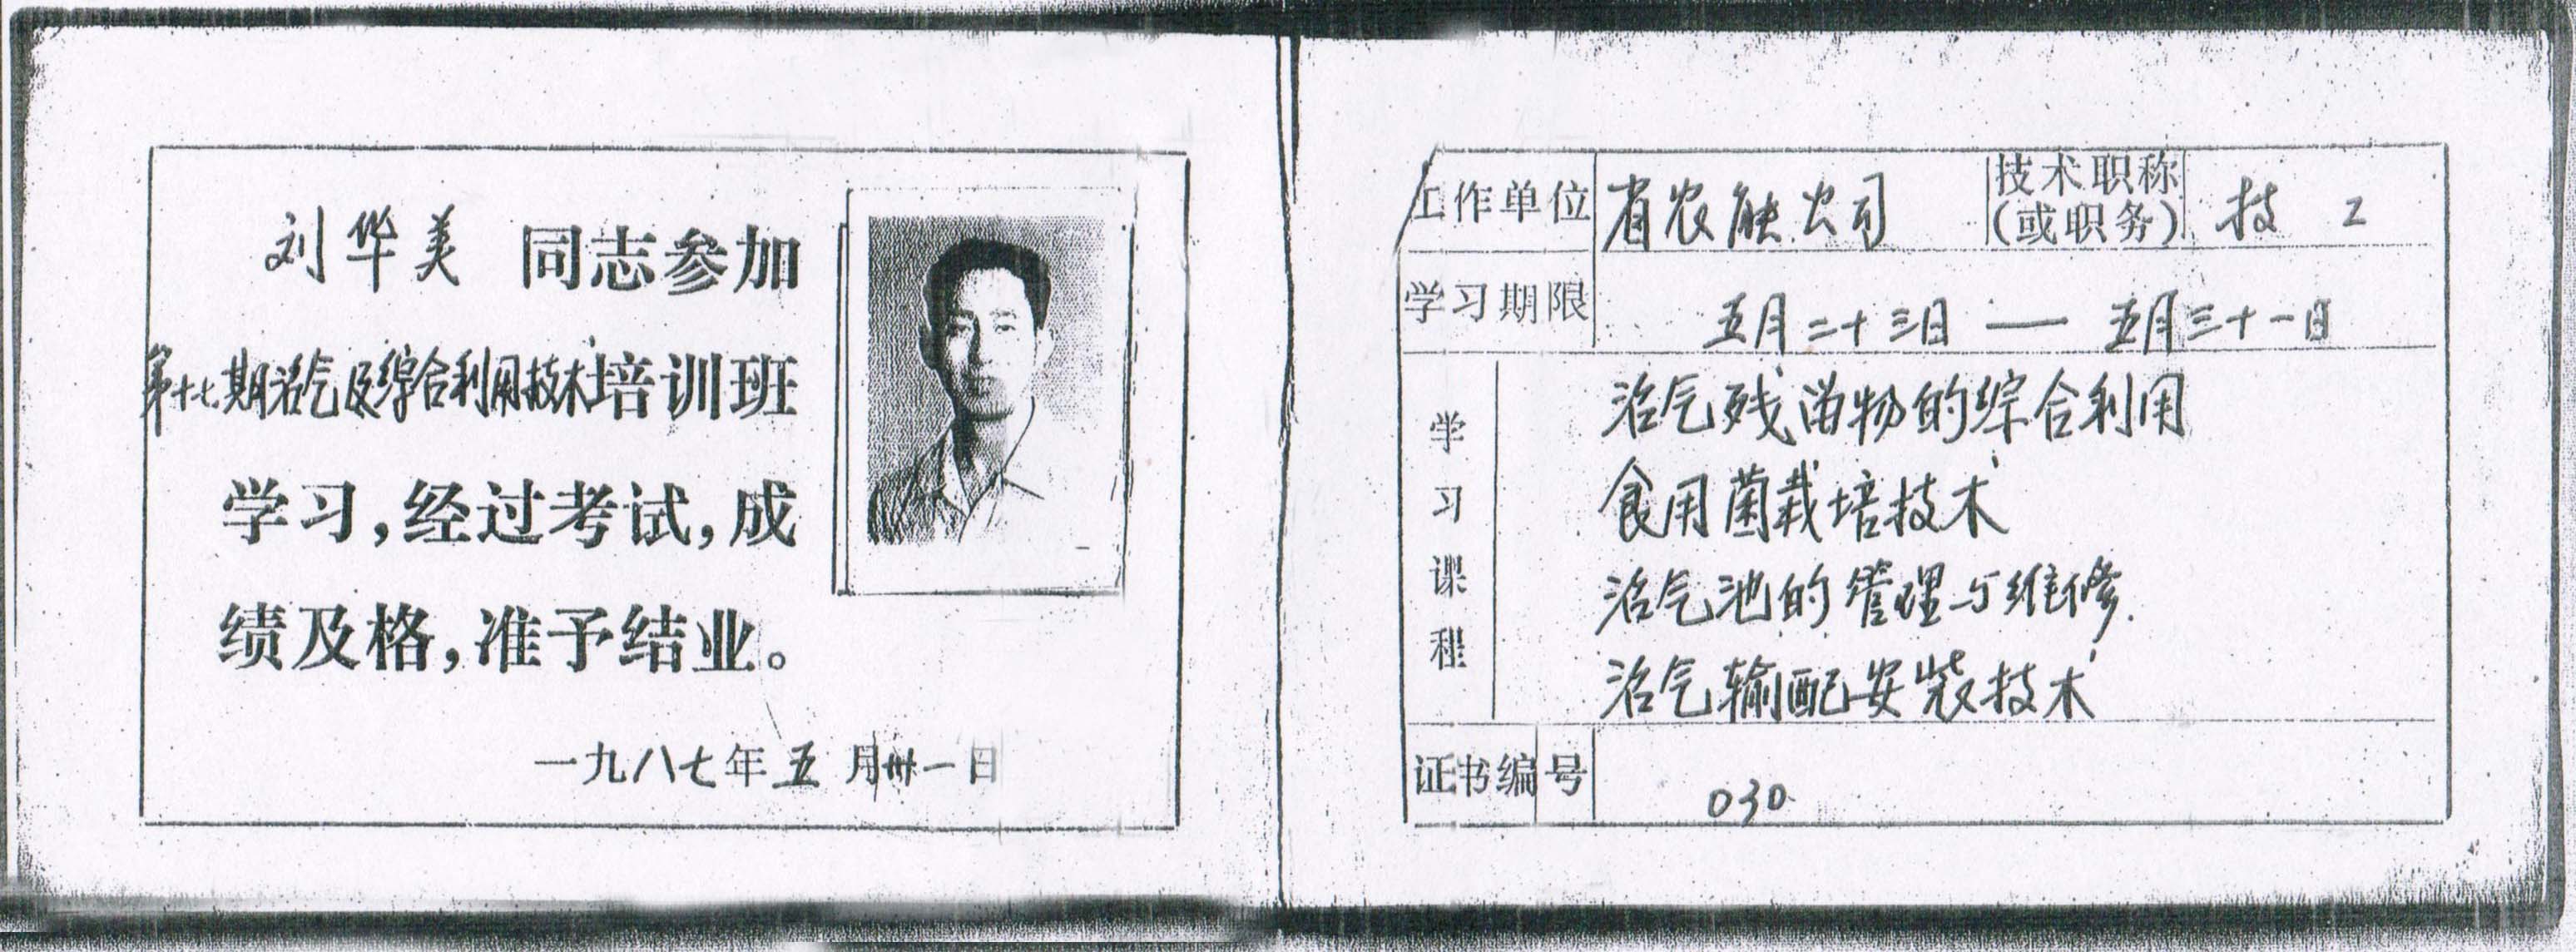 刘华美 同志参加
第十七期沼气及综合利用技术培训班
学习，经过考试，成
绩及格，准予结业。
一九八七年五月卅一日
工作单位 省农能公司 技术职称（或职务） 技工
学习期限 五月二十三日 —— 五月三十一日
学习课程
沼气残留物的综合利用
食用菌栽培技术
沼气池的管理与维修.
沼气输配安装技术
证书编号 030